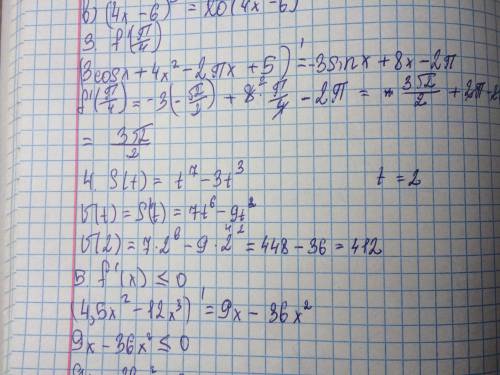 б) (4x - 6) = 20(4x - 6)
3. f'(π/4)
(3cosx + 4x² - 2πx + 5)' = -3sinx + 8x - 2π
f'(π/4) = -3(-√2/2) + 8·π/4 - 2π = 3√2/2 + 2π -
= 3√2/2
4. S(t) = t⁷ - 3t³ t = 2
V(t) = S'(t) = 7t⁶ - 9t²
V(2) = 7·2⁶ - 9·2² = 448 - 36 = 412
5. f'(x) ≤ 0
(4,5x² - 12x³)' = 9x - 36x²
9x - 36x² ≤ 0